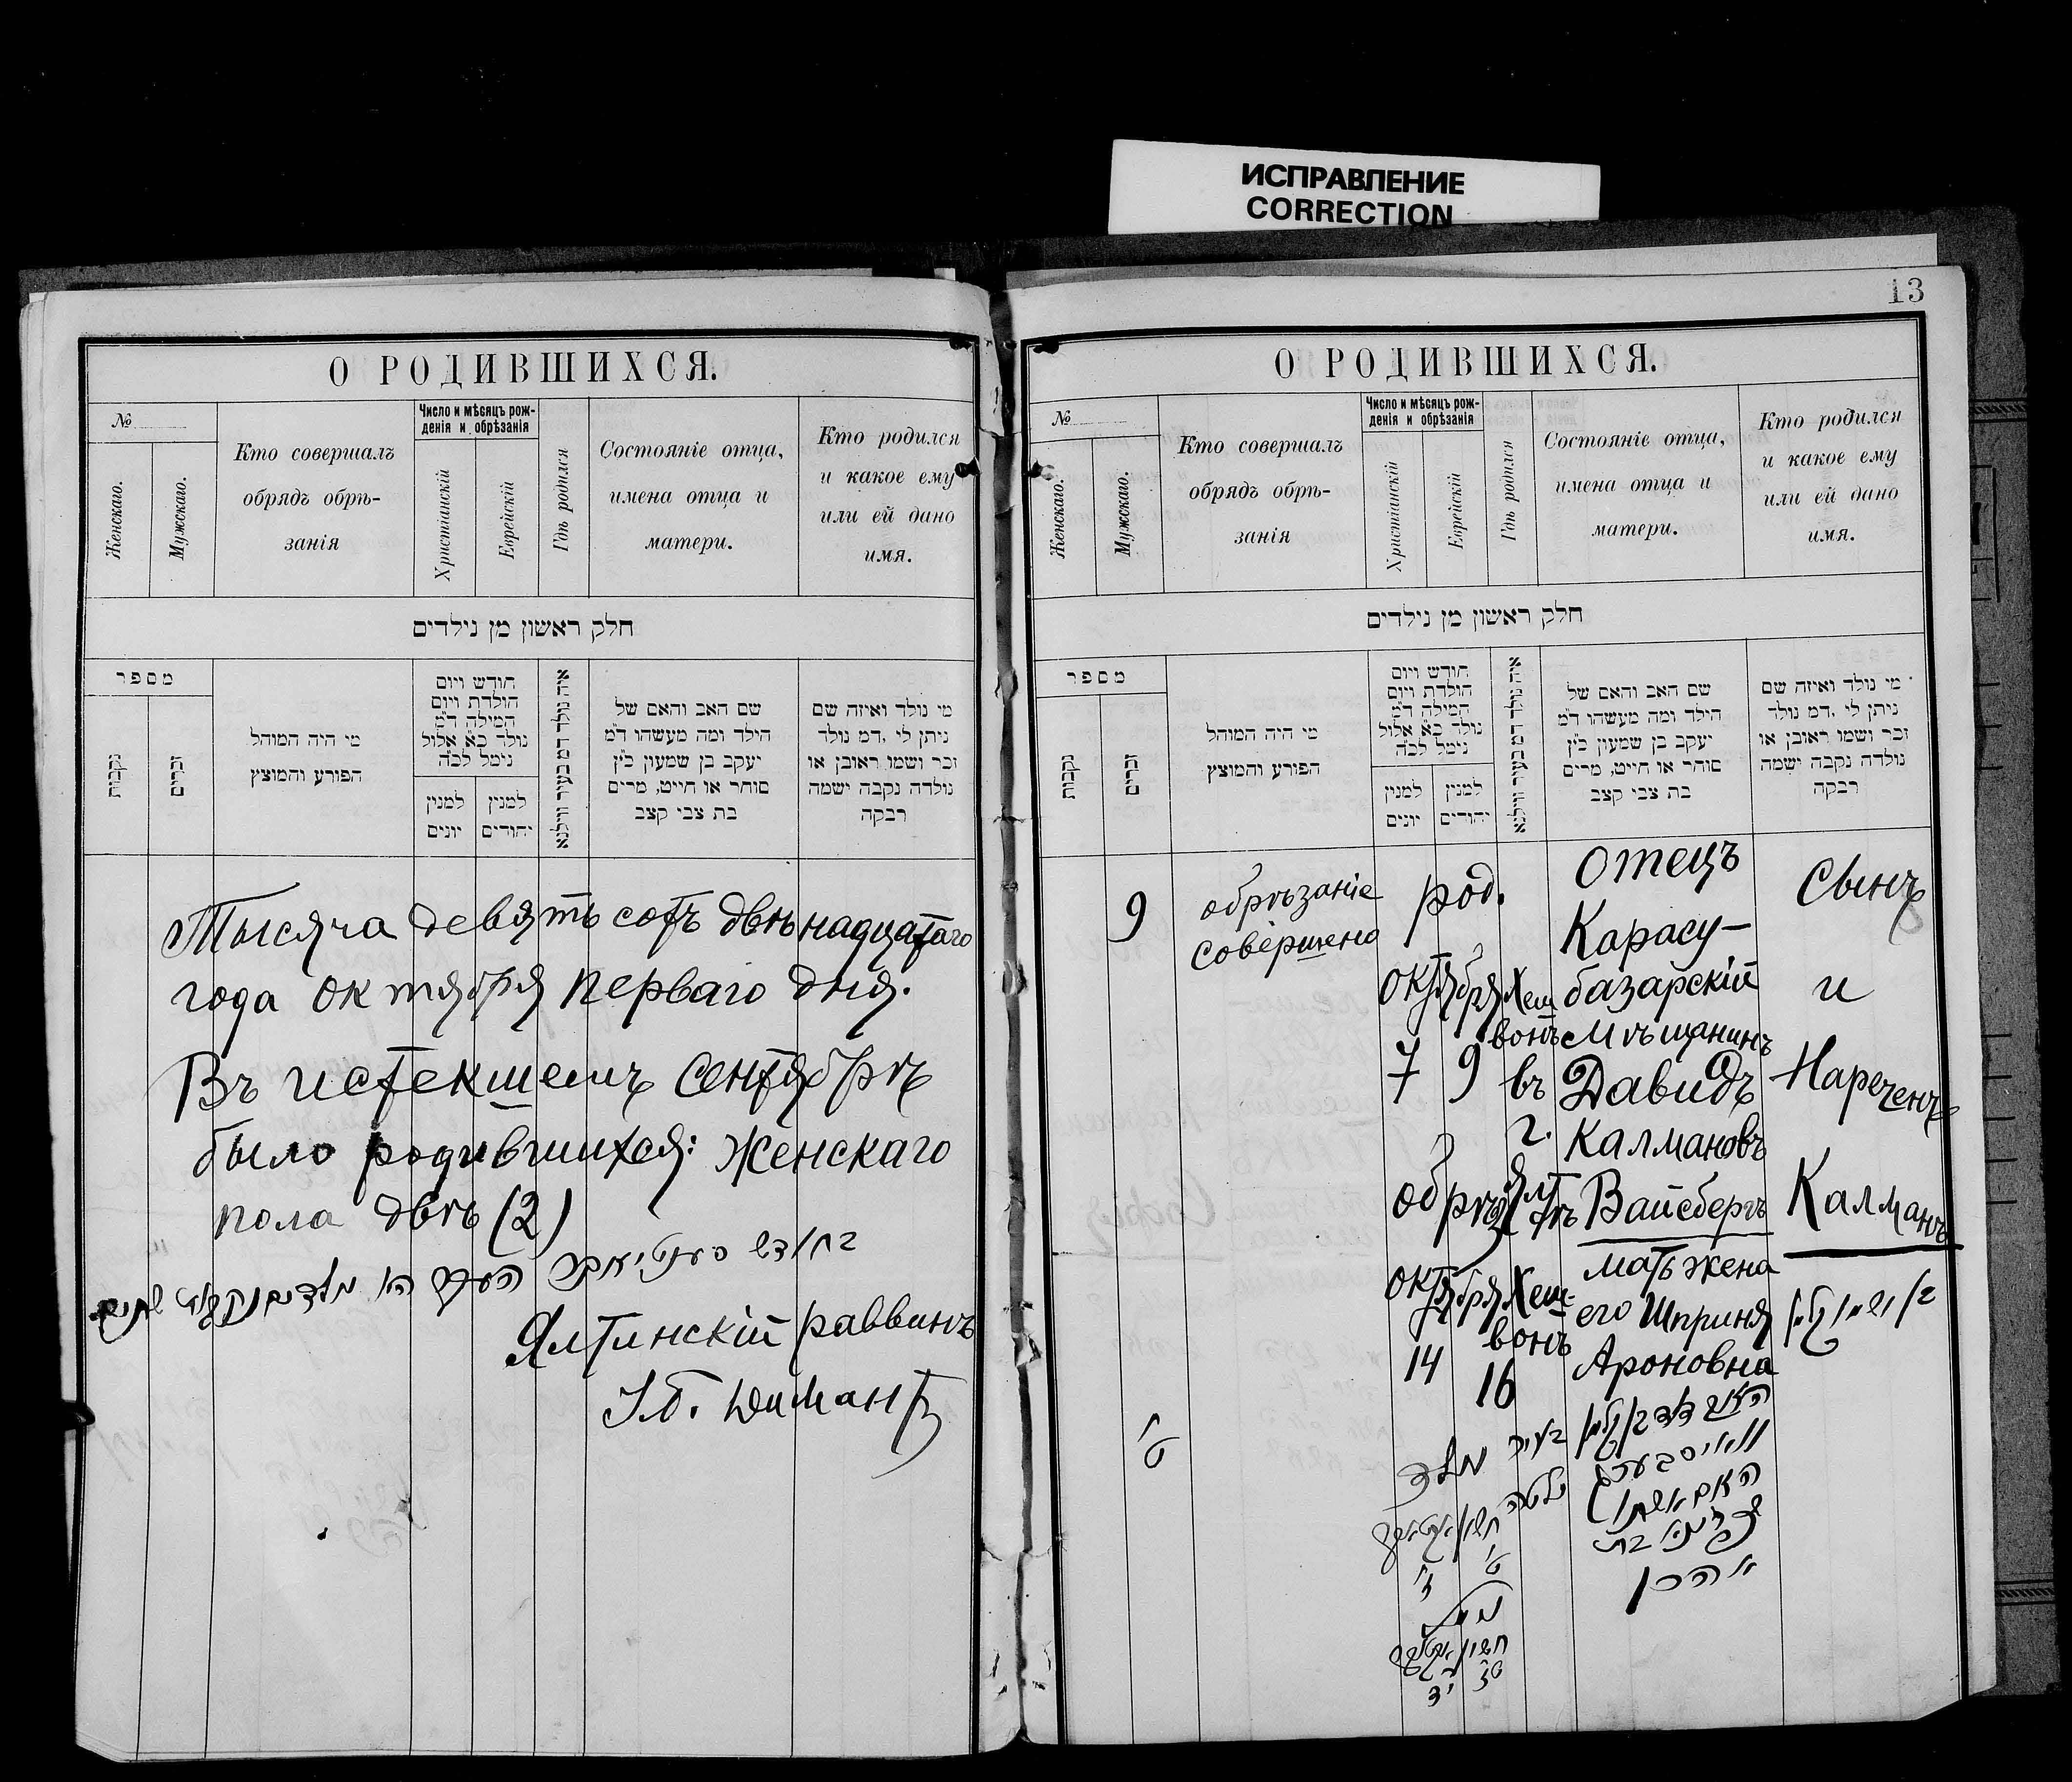 ИСПРАВЛЕНИЕ
CORRECTION
О РОДИВШИХСЯ.
№
Женскаго.
Мужскаго.
Кто совершалъ
обрядъ обрѣ-
занія
Число и мѣсяцъ рож-
денія и обрѣзанія
Христіанскій
Еврейскій
Гдѣ родился
Состояніе отца,
имена отца и
матери.
Кто родился
и какое ему
или ей дано
имя.
חלק ראשון מן נילדים
מספר
נקבות
זכרים
מי היה המוהל
הפורע והמוצץ
חודש ויום
הולדת ויום
המילה ד״מ
נולד כ״א אלול
נימל לכ״ה
למנין
יונים
למנין
יהודים
איה נולד דמ בעיר ווילנא
שם האב והאם של
הילד ומה מעשהו ד״מ
יעקב בן שמעון כ״ץ
סוחר או חייט, מרים
בת צבי קצב
מי נולד ואיזה שם
ניתן לי .דמ נולד
זכר ושמו ראובן או
נולדה נקבה ישמה
רבקה
Тысяча девять сотъ двѣнадцатаго
года октября перваго дня.
Въ истекшемъ сентябрѣ
было родившихся: женскаго
пола двѣ (2)
Ялтинскій раввинъ
13
О РОДИВШИХСЯ.
№
Женскаго.
Мужскаго.
Кто совершалъ
обрядъ обрѣ-
занія
Число и мѣсяцъ рож-
денія и обрѣзанія
Христіанскій
Еврейскій
Гдѣ родился
Состояніе отца,
имена отца и
матери.
Кто родился
и какое ему
или ей дано
имя.
חלק ראשון מן נילדים
מספר
נקבות
זכרים
מי היה המוהל
הפורע והמוצץ
חודש ויום
הולדת ויום
המילה ד״מ
נולד כ״א אלול
נימל לכ״ה
למנין
יונים
למנין
יהודים
איה נולד דמ בעיר ווילנא
שם האב והאם של
הילד ומה מעשהו ד״מ
יעקב בן שמעון כ״ץ
סוחר או חייט, מרים
בת צבי קצב
מי נולד ואיזה שם
ניתן לי .דמ נולד
זכר ושמו ראובן או
נולדה נקבה ישמה
רבקה
9
обрѣзаніе
совершено
род.
октября Хеш
вонъ
7 9
обрѣз.
октября Хеш-
вонъ
14 16
въ
г.
Ялтѣ
Отецъ
Карасу-
базарскій
мѣщанинъ
Давидъ
Калмановъ
Вайсбергъ
мать жена
его Шприня
Ароновна
Сынъ
и
Нареченъ
Калманъ
בן ושמו קלמן
ט׳
נולד
בעיר
ילטה
ט׳
ז׳
נימול
ט״ז
י״ד
האב דוד בן קלמן
ווייסבערג
האם אשתו
שפרינא בת
אהרן